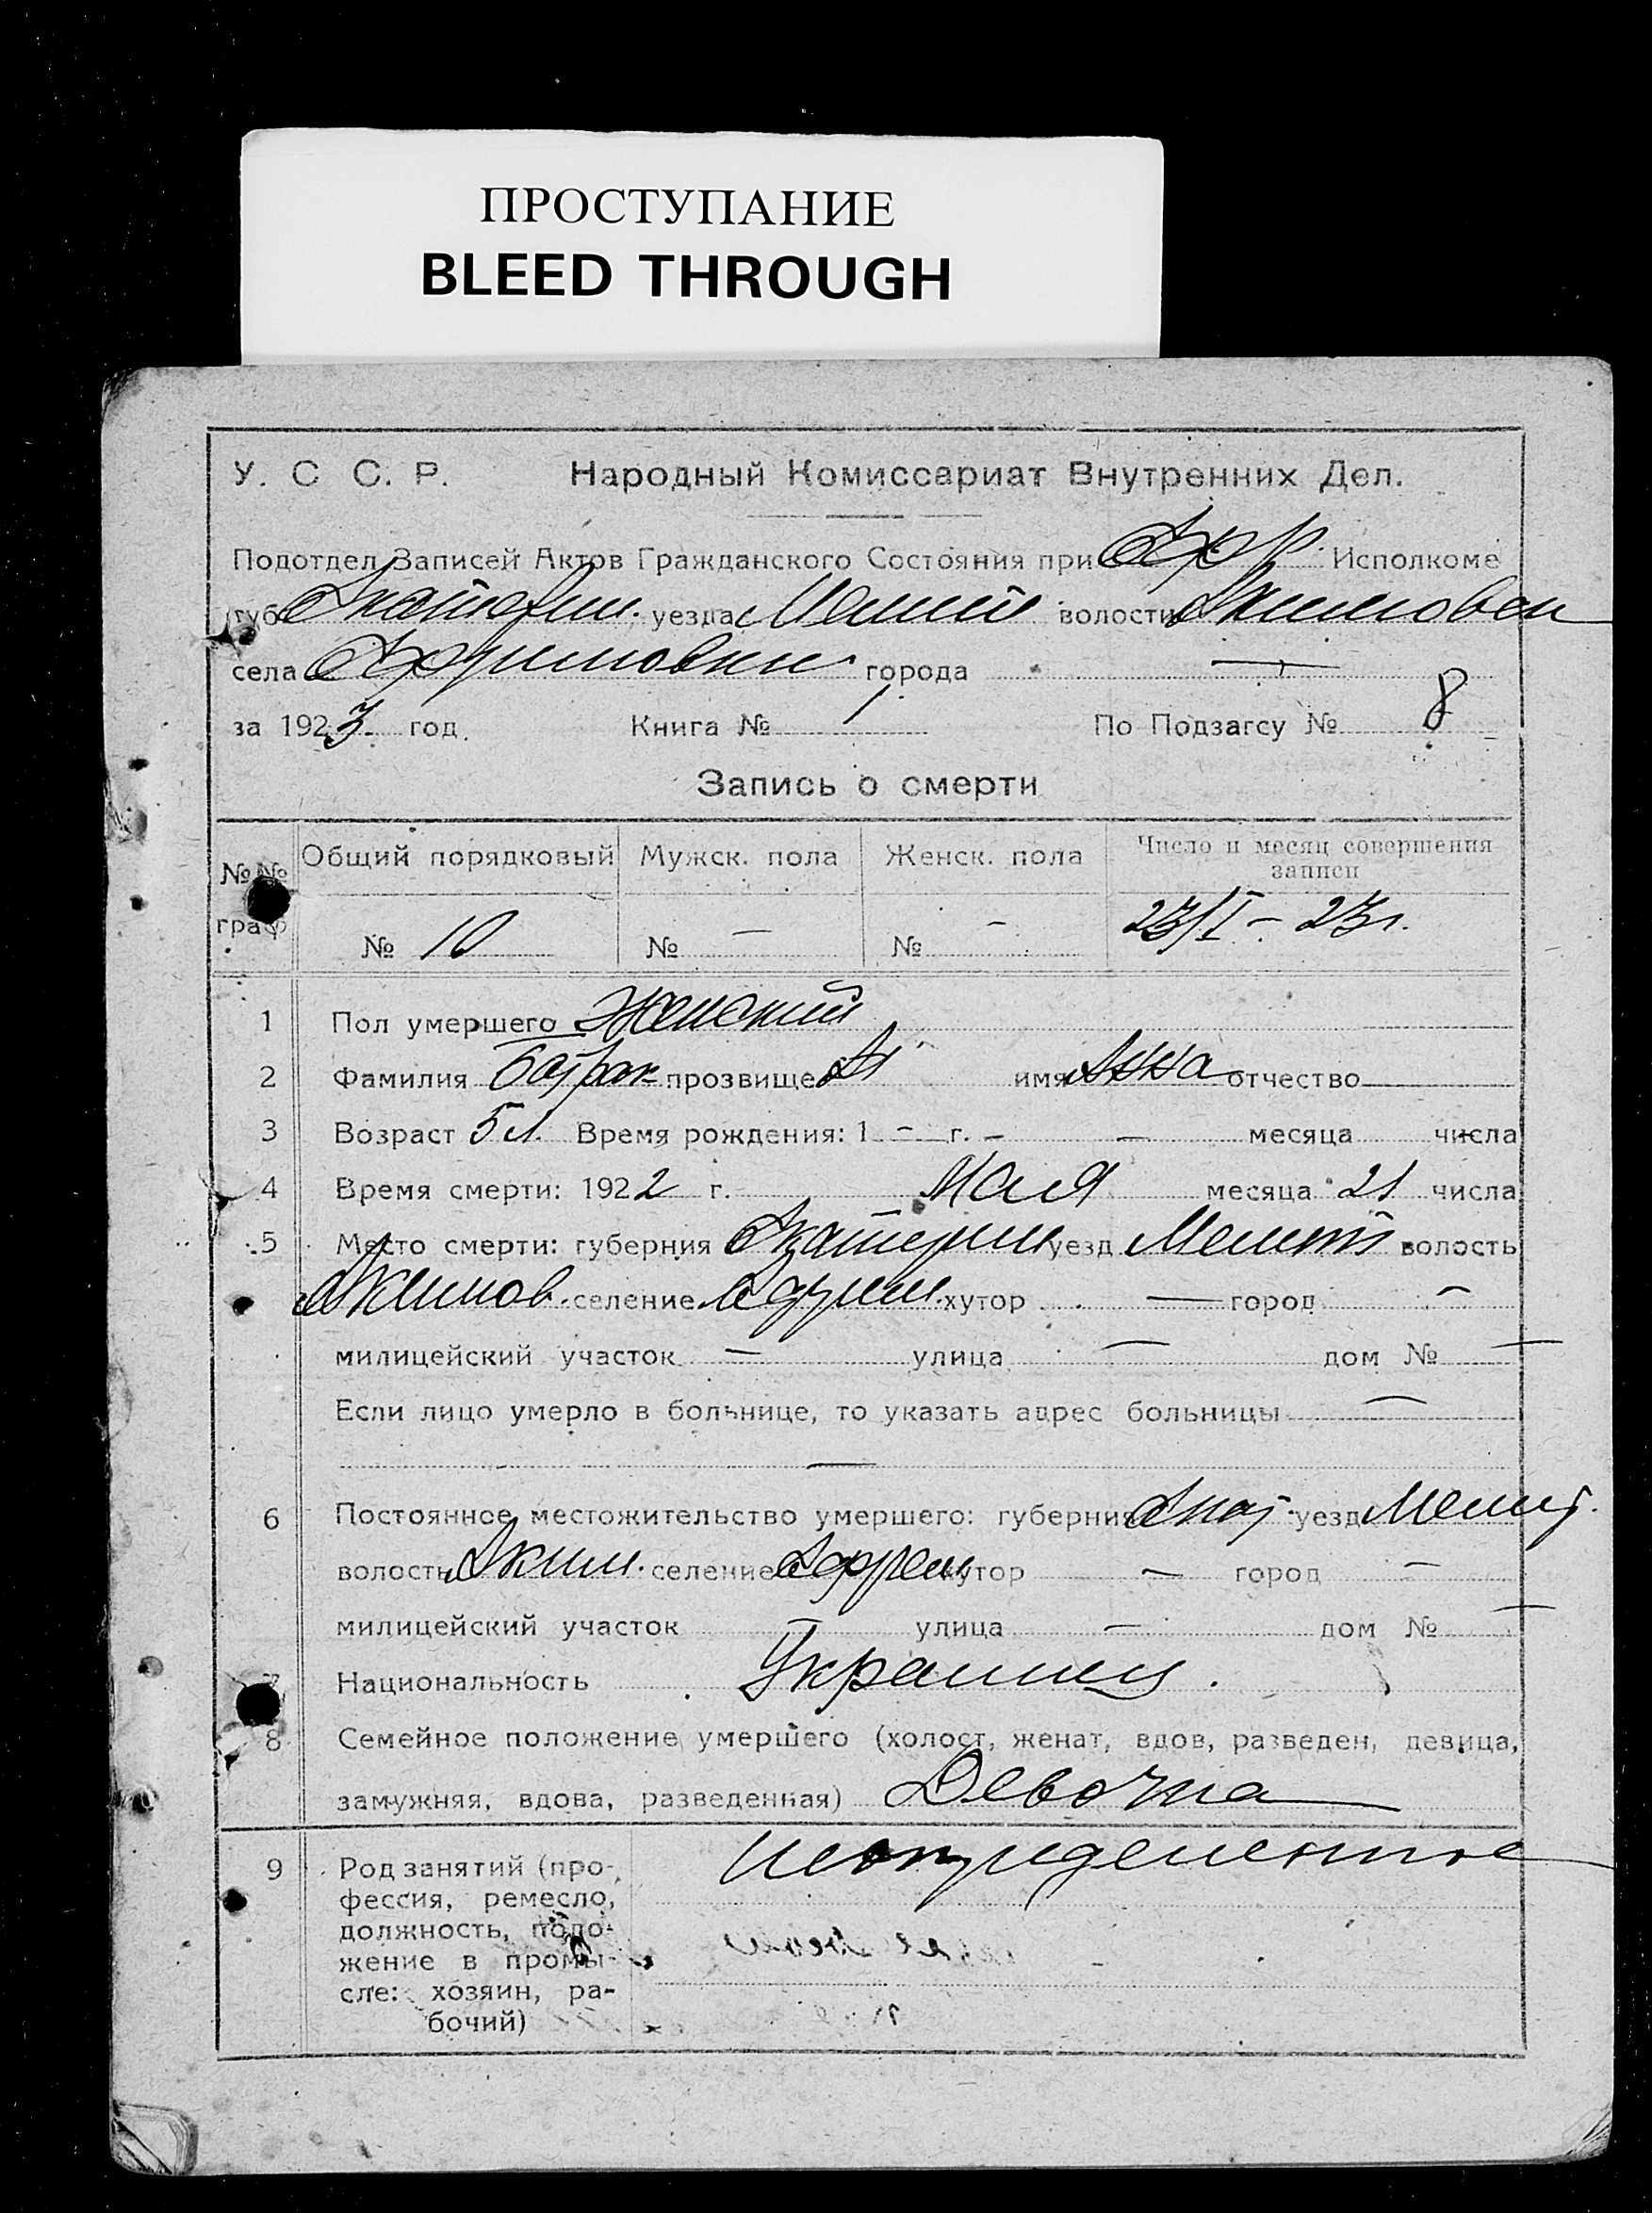 ПРОСТУПАНИЕ
BLEED THROUGH
У. С С. Р. Народный Комиссариат Внутренних Дел.
Подотдел Записей Актов Гражданского Состояния при Исполкоме
губ. уезда Мелит волости Акимовск
села города —
за 1923 год. Книга № 1 По Подзагсу № 8
Запись о смерти
№№ граф Общий порядковый Мужск. пола Женск. пола Число и месяц совершения записи
№ 10 № — № — 23/I – 23 г.
1 Пол умершего Женский
2 Фамилия прозвище имя Анна отчество
3 Возраст 5 л. Время рождения: 1 – г. – — месяца числа
4 Время смерти: 1922 г. Мая месяца 21 числа
5 Место смерти: губерния Екатерин уезд Мелит волость
Акимов. селение хутор — город —
милицейский участок — улица — дом № —
Если лицо умерло в больнице, то указать адрес больницы —
—
6 Постоянное местожительство умершего: губерния Екат уезд Мелит.
волость Аким. селение хутор — город —
милицейский участок улица — дом № —
7 Национальность Украинец.
8 Семейное положение умершего (холост, женат, вдов, разведен, девица,
замужняя, вдова, разведенная) Девочка
9 Род занятий (про-
фессия, ремесло,
должность, поло-
жение в промы-
сле: хозяин, ра-
бочий)